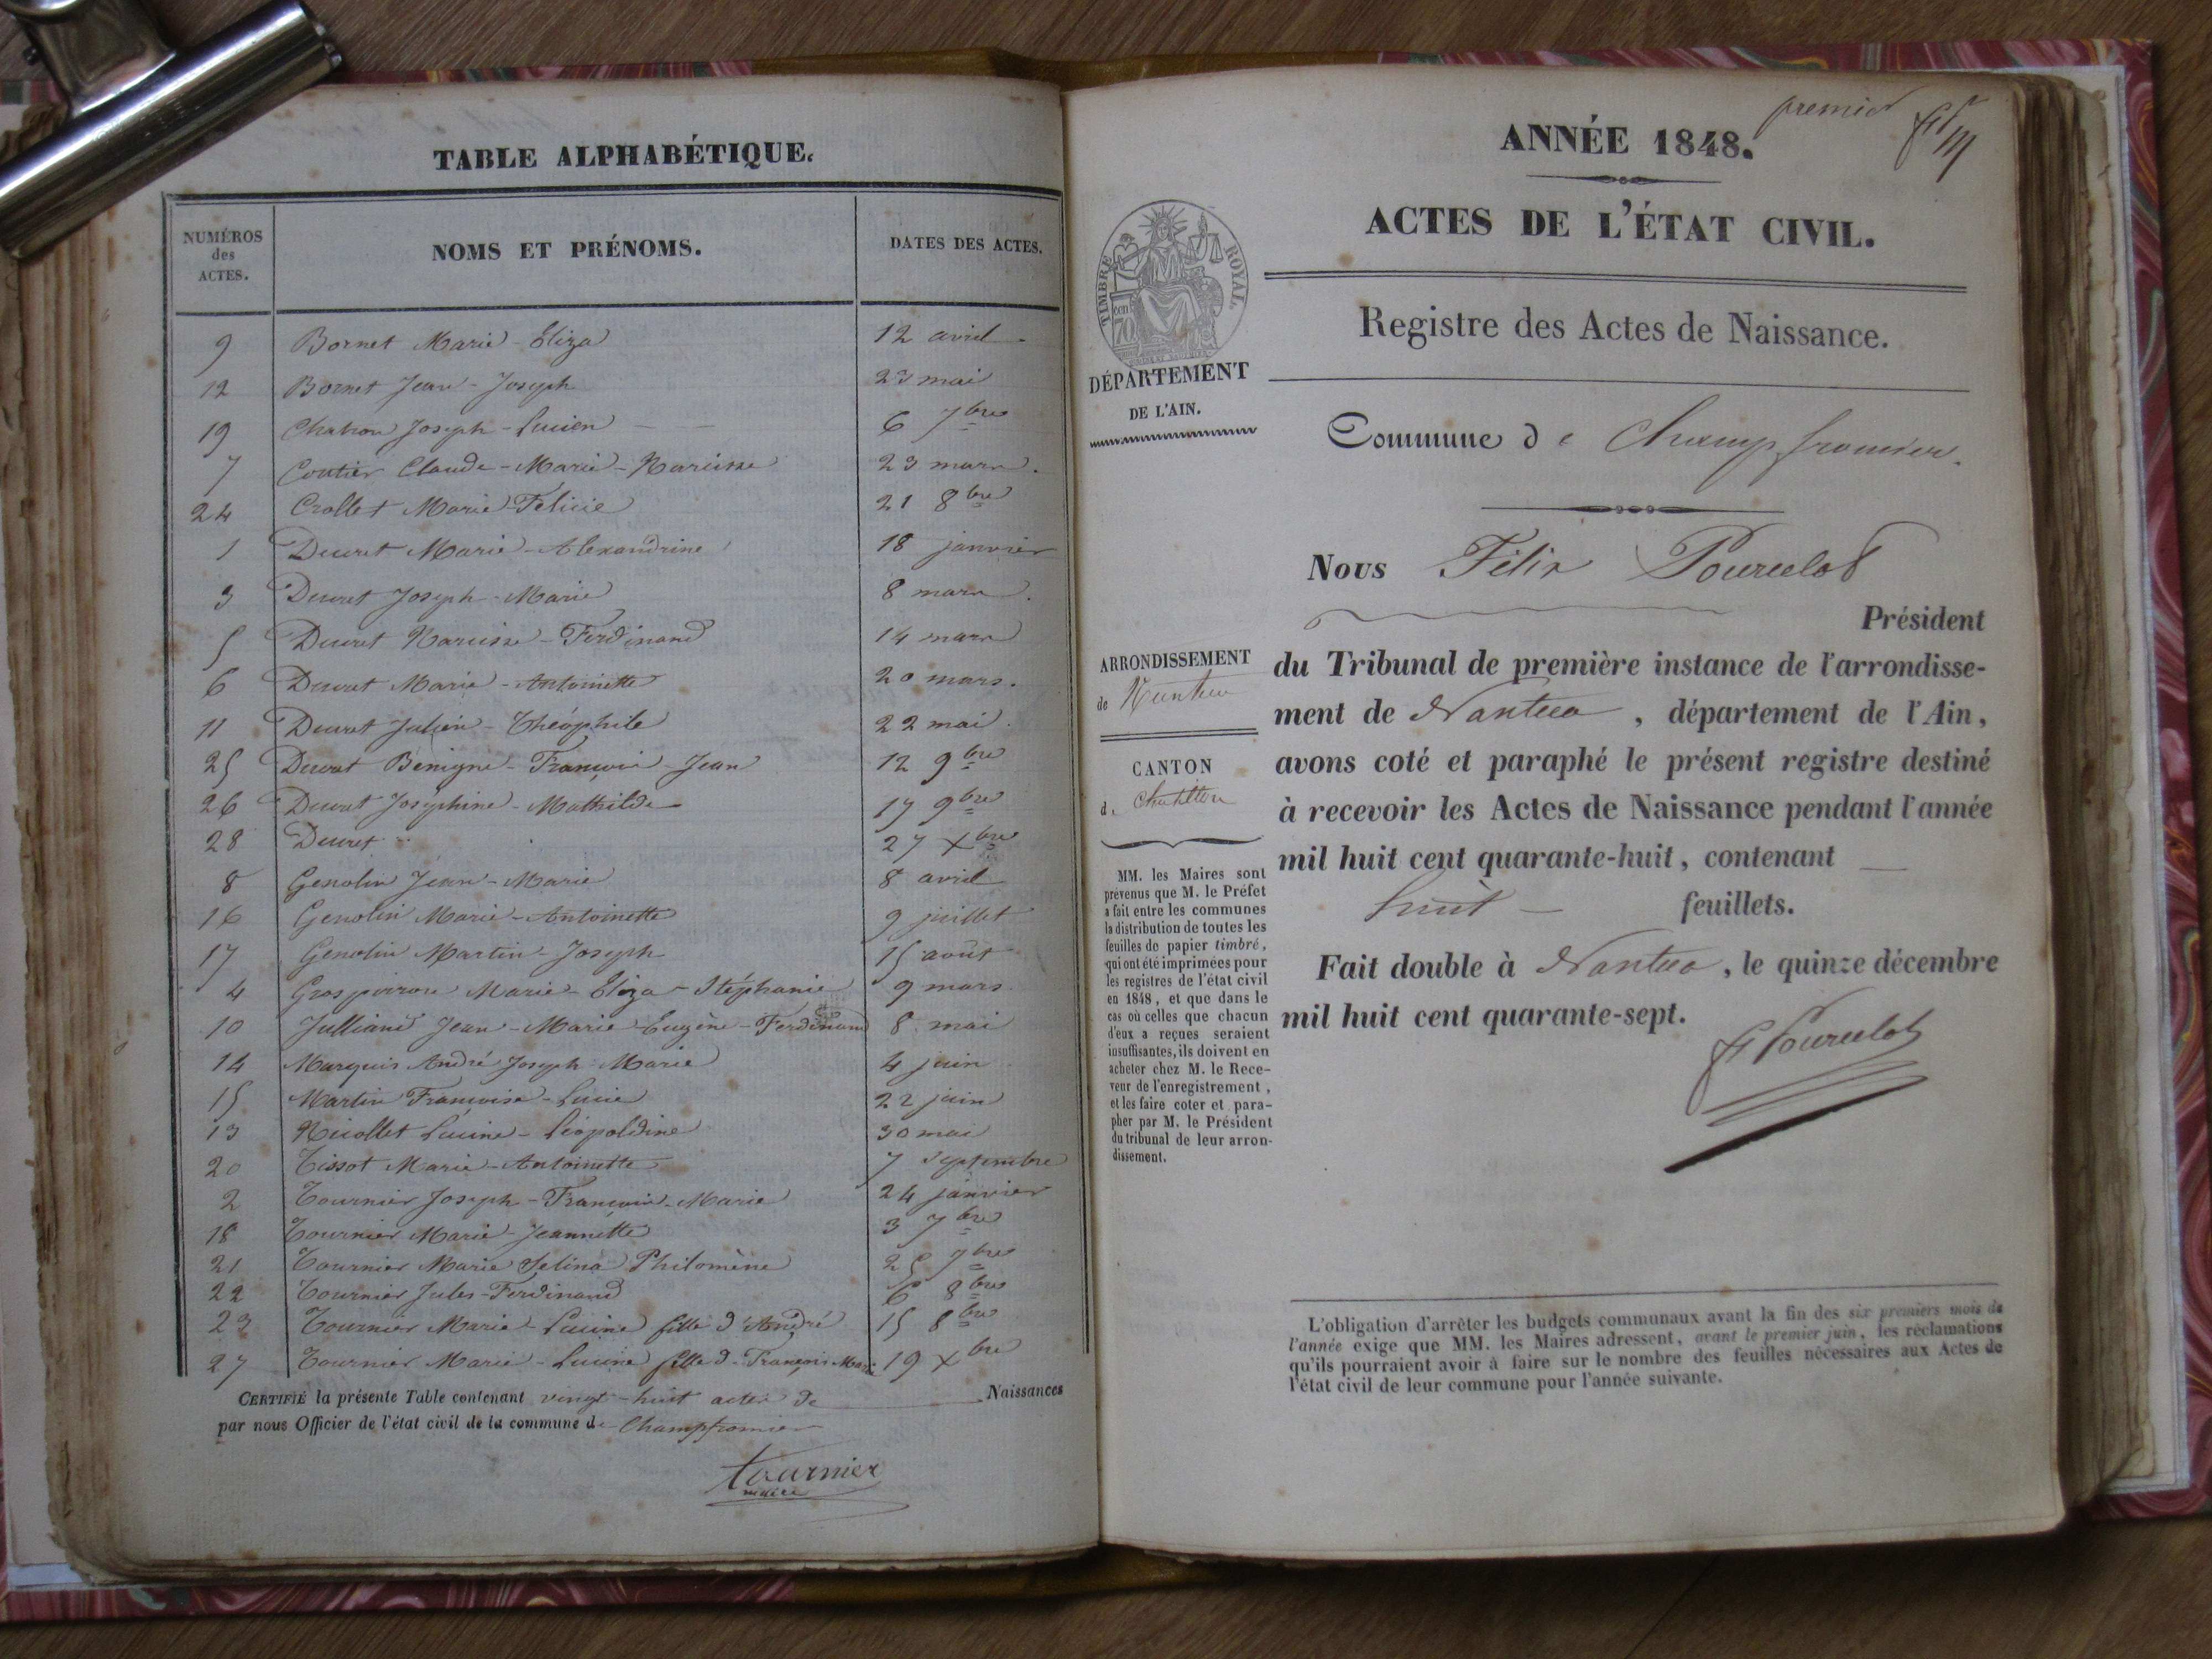 TABLE ALPHABÉTIQUE.
NUMÉROS
des
ACTES.
NOMS ET PRÉNOMS.
DATES DES ACTES.
9 Bornet Marie-Eliza 12 avril
12 Bornet Jean-Joseph 23 mai
19 Joseph-Lucien 6 7bre
7 Coutier Claude-Marie-Narcisse 23 mars.
24 Crollet Marie-Félicie 21 8bre
1 Ducret Marie-Alexandrine 18 janvier
3 Ducret Joseph-Marie 8 mars.
5 Ducret Narcisse-Ferdinand 14 mars
6 Ducret Marie-Antoinette 20 mars.
11 Ducret Julien-Théophile 22 mai.
25 Ducret Bénigne-François-Jean 12 9bre
26 Ducret Joséphine-Mathilde 17 9bre
28 Ducret 27 Xbre
8 Genolin Jean-Marie 8 avril
16 Genolin Marie-Antoinette 9 juillet
17 Genolin Martin-Joseph 15 août
4 Grospiron Marie-Eliza-Stéphanie 9 mars.
10 Julliand Jean-Marie-Eugène-Ferdinand 8 mai
14 Marquis André Joseph-Marie 4 juin
15 Martin Françoise-Lucie 22 juin
13 Nicollet Lucine-Léopoldine 30 mai
20 Tissot Marie-Antoinette 7 septembre
2 Tournier Joseph-François-Marie 24 janvier
18 Tournier Marie-Jeannette 3 7bre
21 Tournier Marie Selina Philomène 25 7bre
22 Tournier Jules-Ferdinand 6 8bre
23 Tournier Marie-Lucine fille d'André 15 8bre
27 Tournier Marie-Lucine fille d. François Marie 19 Xbre
CERTIFIÉ la présente Table contenant vingt-huit actes de Naissances
par nous Officier de l'état civil de la commune de Champfromier
tournier
maire
premier
ANNÉE 1848.
ACTES DE L'ÉTAT CIVIL.
TIMBRE ROYAL
cen
70
Registre des Actes de Naissance.
DÉPARTEMENT
DE L'AIN.
Commune de Champfromier.
Nous Félix Pourcelot
Président
ARRONDISSEMENT
de Nantua
CANTON
d. Chatillon
MM. les Maires sont
prévenus que M. le Préfet
a fait entre les communes
la distribution de toutes les
feuilles de papier timbré,
qui ont été imprimées pour
les registres de l'état civil
en 1848, et que dans le
cas où celles que chacun
d'eux a reçues seraient
insuffisantes, ils doivent en
acheter chez M. le Rece-
veur de l'enregistrement,
et les faire coter et para-
pher par M. le Président
du tribunal de leur arron-
dissement.
du Tribunal de première instance de l'arrondisse-
ment de Nantua, département de l'Ain,
avons coté et paraphé le présent registre destiné
à recevoir les Actes de Naissance pendant l'année
mil huit cent quarante-huit, contenant
huit feuillets.
Fait double à Nantua, le quinze décembre
mil huit cent quarante-sept.
f Pourcelot
L'obligation d'arrêter les budgets communaux avant la fin des six premiers mois de
l'année exige que MM. les Maires adressent, avant le premier juin, les réclamations
qu'ils pourraient avoir à faire sur le nombre des feuilles nécessaires aux Actes de
l'état civil de leur commune pour l'année suivante.